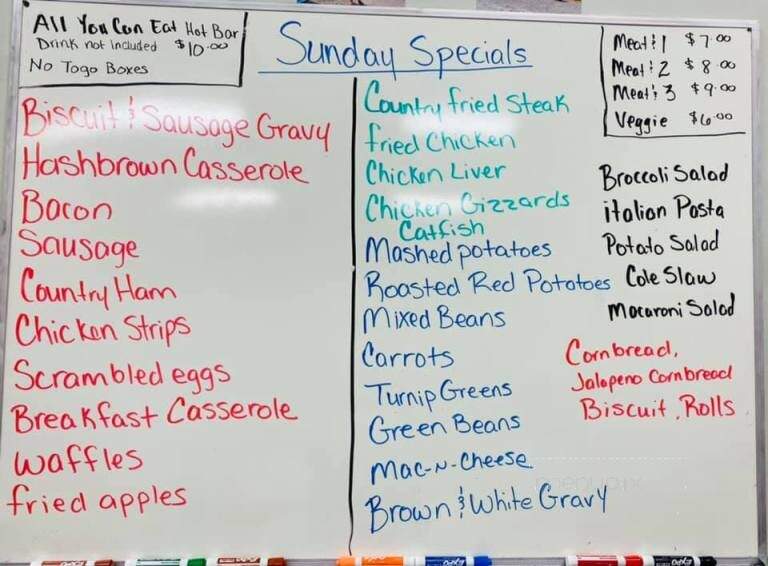 All You Can Eat Hot Bar
Drink not Included $10.00
No Togo Boxes
Sunday Specials
Meat & 1 $7.00
Meat & 2 $8.00
Meat & 3 $9.00
Veggie $6.00
Biscuit & Sausage Gravy
Hashbrown Casserole
Bacon
Sausage
Country Ham
Chicken Strips
Scrambled eggs
Breakfast Casserole
Waffles
fried apples
Country fried Steak
fried Chicken
Chicken Liver
Chicken Gizzards
Catfish
Mashed potatoes
Roasted Red Potatoes
Mixed Beans
Carrots
Turnip Greens
Green Beans
Mac-N-Cheese
Brown & White Gravy
Broccoli Salad
italian Pasta
Potato Salad
Cole Slaw
Macaroni Salad
Cornbread,
Jalapeno Cornbread
Biscuit, Rolls